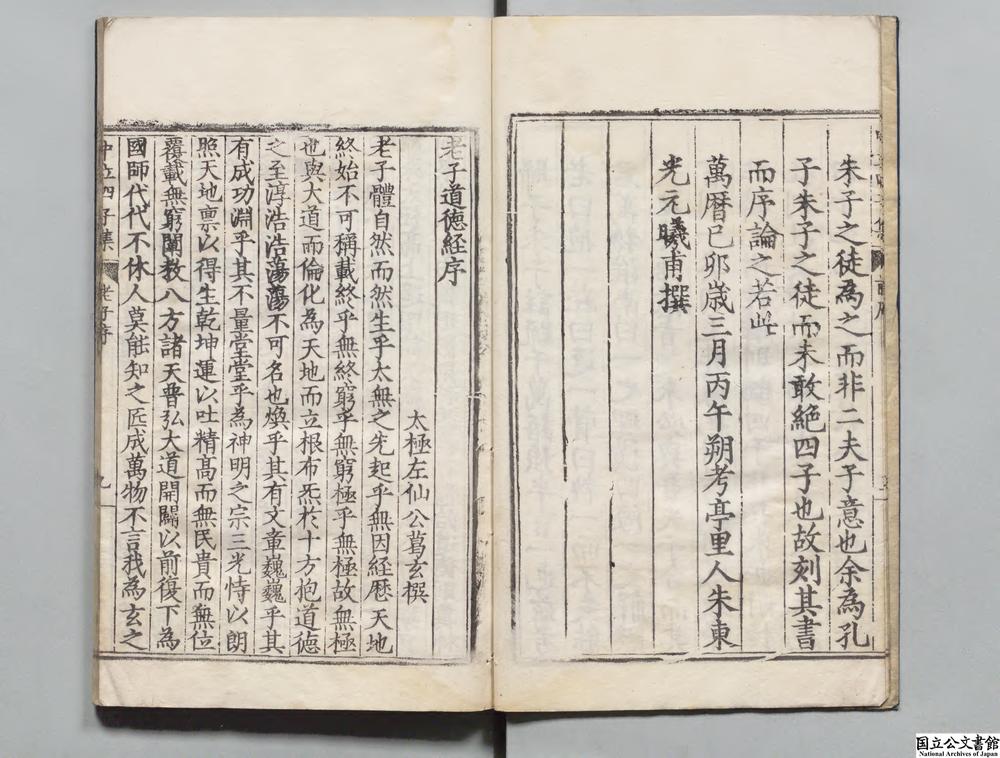 朱子之徒為之而非二夫子意也余為孔
子朱子之徒而未敢絕四子也故刻其書
而序論之若此
萬曆己卯歲三月丙午朔考亭里人朱東
光元曦甫撰
老子道德経序
太極左仙公葛玄撰
老子體自然而然生乎太無之先起乎無因経歷天地
終始不可稱載終乎無終窮乎無窮極乎無極故無極
也與大道而倫化為天地而立根布炁於十方抱道德
之至淳浩浩蕩蕩不可名也煥乎其有文章巍巍乎其
有成功淵乎其不量堂堂乎為神明之宗三光恃以朗
照天地禀以得生乾坤運以吐精髙而無民貴而無位
覆載無窮闡教八方諸天普弘大道開闢以前復下為
國師代代不休人莫能知之匠成萬物不言我為玄之
中立四子集 老子序 九
国立公文書館
National Archives of Japan